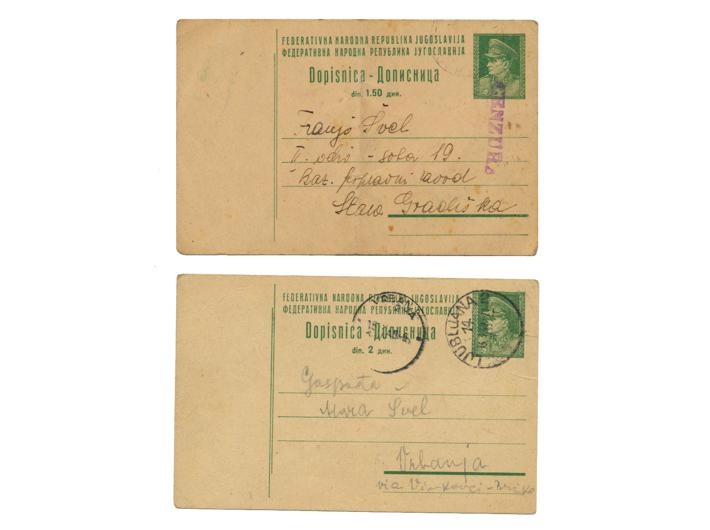 FEDERATIVNA NARODNA REPUBLIKA JUGOSLAVIJA
ФЕДЕРАТИВНА НАРОДНА РЕПУБЛИКА ЈУГОСЛАВИЈА
Dopisnica - Дописница
din. 1.50 дин.
CENZURA
Franjo Švel
II. odio - soba 19.
Kaz. popravni zavod
Stara Gradiška
FEDERATIVNA NARODNA REPUBLIKA JUGOSLAVIJA
ФЕДЕРАТИВНА НАРОДНА РЕПУБЛИКА ЈУГОСЛАВИЈА
Dopisnica - Дописница
din. 2 дин.
VRBANJA
LJUBLJANA
14
Gospođa
Mara Švel
Vrbanja
via Vinkovci - Brčko